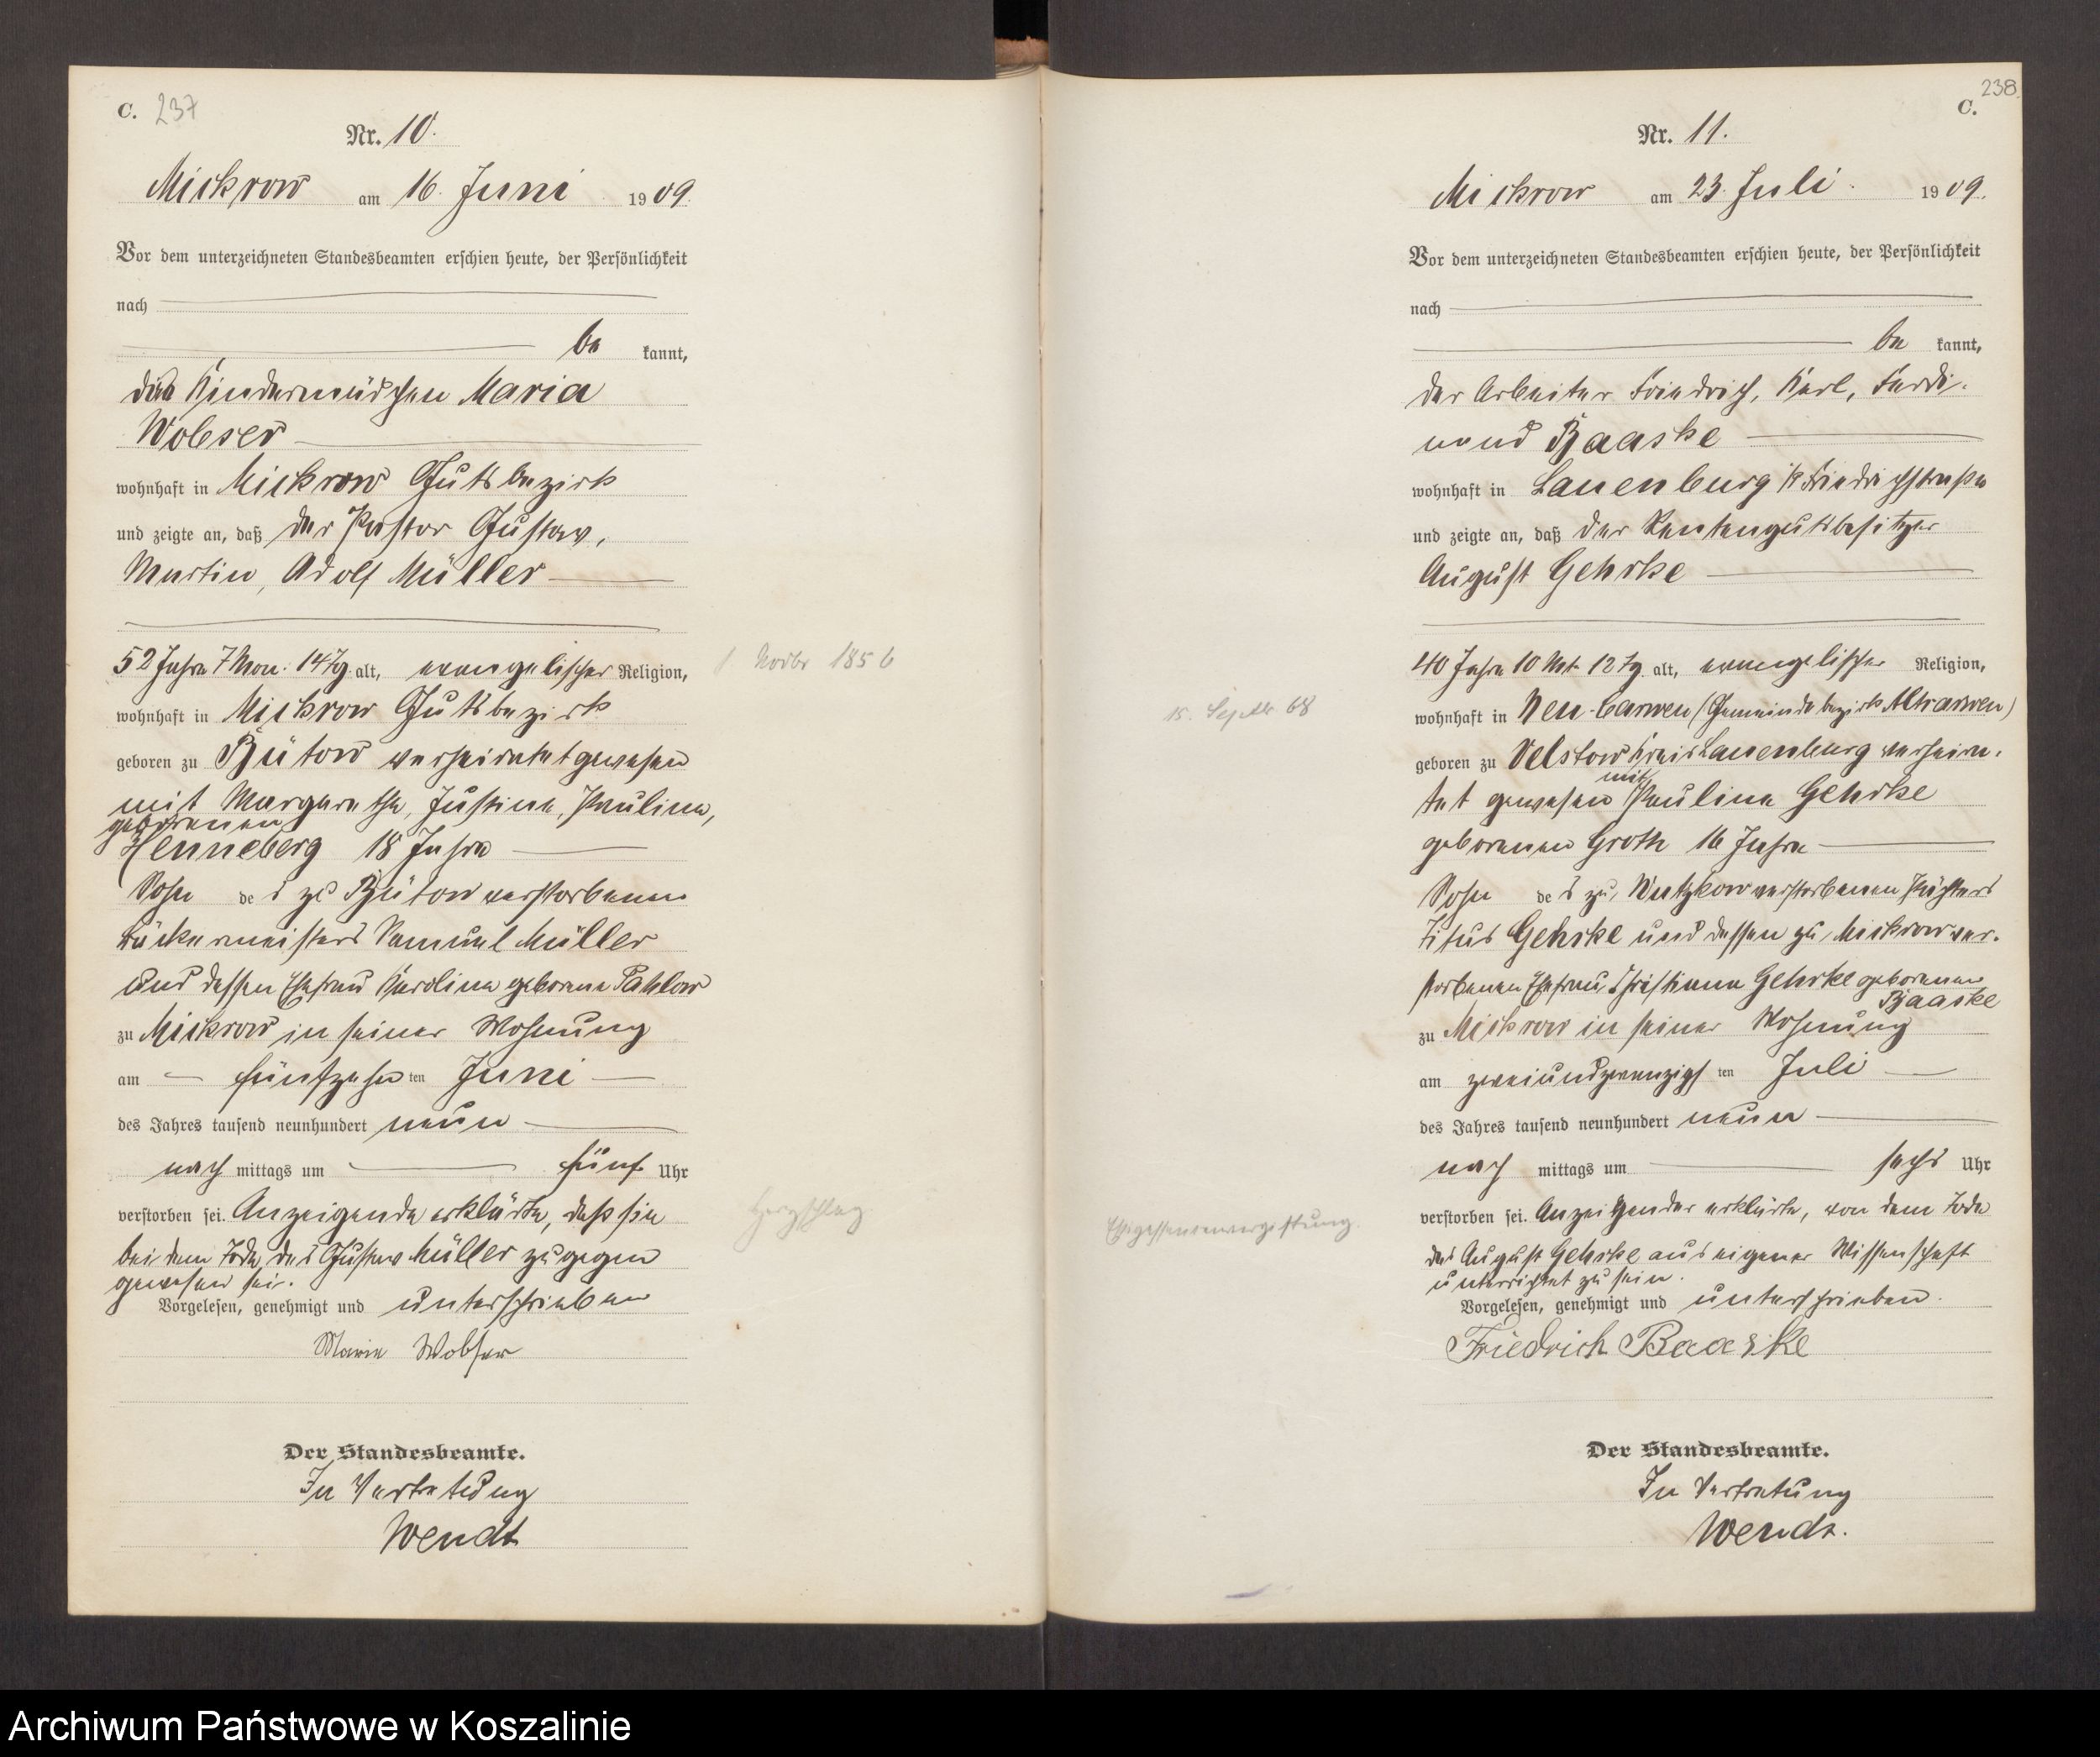 C. 237
Nr. 10.
Mickrow am 16. Juni 1909.
Vor dem unterzeichneten Standesbeamten erschien heute, der Persönlichkeit
nach
be kannt,
das Kindermädchen Maria
Wobser
wohnhaft in Mickrow Gutsbezirk
und zeigte an, daß der Pastor Gustav,
Martin, Adolf Müller
52 Jahre 7 Mon. 14 Tg. alt, evangelischer Religion,
1 Novbr 1856
wohnhaft in Mickrow Gutsbezirk
geboren zu Bütow verheiratet gewesen
mit Margarethe, Justine, Pauline,
geborenen
Henneberg 18 Jahre
Sohn des zu Bütow verstorbenen
Bäckermeisters Samuel Müller
und dessen Ehefrau Karoline geborene Pahlow
zu Mickrow in seiner Wohnung
am fünfzehn ten Juni
des Jahres tausend neunhundert neun
nach mittags um fünf Uhr
verstorben sei. Anzeigende erklärte, daß sie
Herzschlag
bei dem Tode des Gustav Müller zugegen
gewesen sei.
Vorgelesen, genehmigt und unterschrieben
Marie Wobser
Der Standesbeamte.
In Vertretung
Wendt
238
C.
Nr. 11.
Mickrow am 23. Juli 1909.
Vor dem unterzeichneten Standesbeamten erschien heute, der Persönlichkeit
nach
be kannt,
der Arbeiter Friedrich, Karl, Ferdi-
nand Baaske
wohnhaft in Lauenburg Friedrichstraße
und zeigte an, daß der Rentengutsbesitzer
August Gehrke
40 Jahre 10 Mt. 12 Tg. alt, evangelischer Religion,
15. Septbr 68
wohnhaft in Neu-Carwen (Gemeindebezirk Altcarwen)
geboren zu Velstow Kreis Lauenburg verheira-
tet gewesen mit Pauline Gehrke
geborenen Groth 16 Jahre
Sohn des zu Wutzkow verstorbenen Pächters
Titus Gehrke und dessen zu Mickrow ver-
storbenen Ehefrau Christiane Gehrke geborenen
Baaske
zu Mickrow in seiner Wohnung
am zweiundzwanzigs ten Juli
des Jahres tausend neunhundert neun
nach mittags um sechs Uhr
verstorben sei. Anzeigender erklärte, von dem Tode
des August Gehrke aus eigener Wissenschaft
unterrichtet zu sein.
Vorgelesen, genehmigt und unterschrieben.
Friedrich Baaske
Der Standesbeamte.
In Vertretung
Wendt.
Archiwum Państwowe w Koszalinie